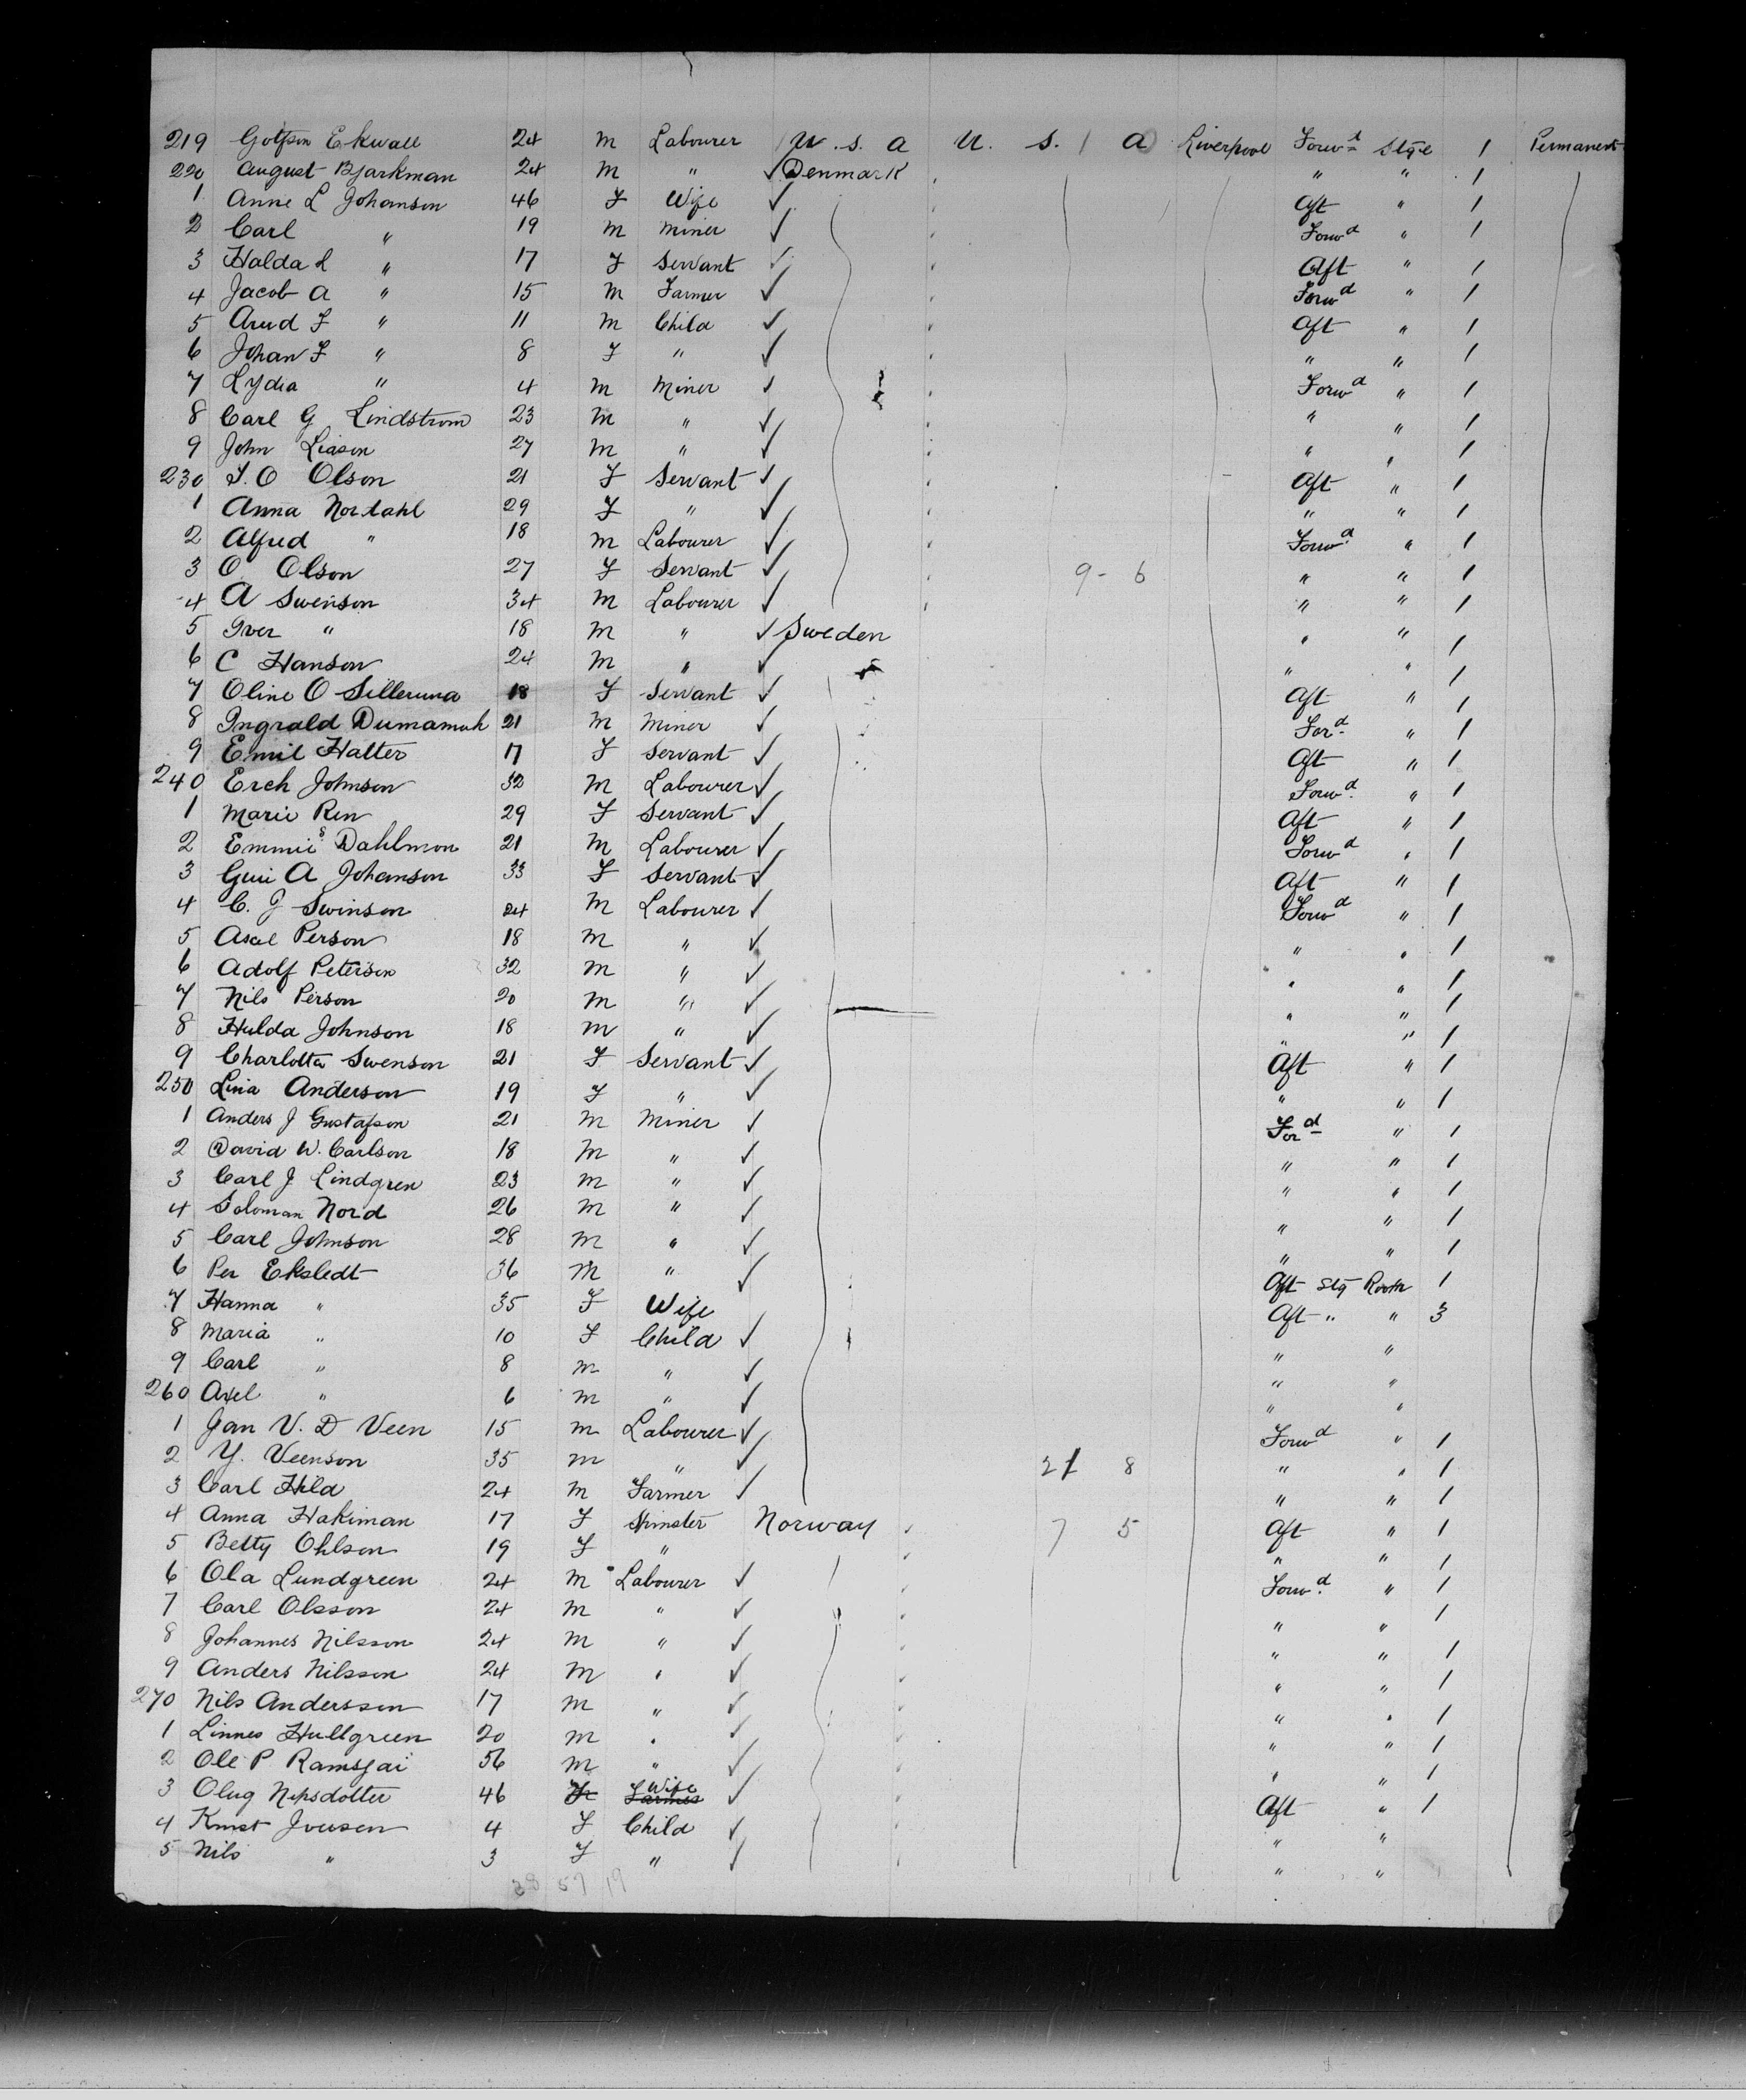 219 Golfson Ekwall 24 M Labourer U.S.A U.S.A Liverpool Forwd Stge 1 Permanent
220 August Bjarkman 24 M " ✓ Denmark " " 1
1 Anne L Johanson 46 F Wife ✓ Aft " 1
2 Carl " 19 M Miner ✓ Forwd " 1
3 Halda L " 17 F Servant ✓ Aft " 1
4 Jacob A " 15 M Farmer ✓ Forwd " 1
5 Arud F " 11 M Child ✓ Aft " 1
6 Johan F " 8 F " ✓ " " 1
7 Lydia " 4 M Miner ✓ Forwd " 1
8 Carl G Lindstrom 23 M " ✓ " " 1
9 John Liason 27 M " ✓ " " 1
230 T. O Olson 21 F Servant ✓ Aft " 1
1 Anna Nordahl 29 F " ✓ " " 1
2 Alfred " 18 M Labourer ✓ Forwd " 1
3 O Olson 27 F Servant ✓ 9 - 6 " " 1
4 A Swenson 34 M Labourer ✓ " " 1
5 Iver " 18 M " ✓ Sweden " " 1
6 C Hanson 24 M " ✓ " " 1
7 Oline O Silleruna 18 F Servant ✓ Aft " 1
8 Ingrald Dumamah 21 M Miner ✓ Ford " 1
9 Emil Halter 17 F Servant ✓ Aft " 1
240 Erch Johnson 32 M Labourer ✓ Forwd " 1
1 Marie Ren 29 F Servant ✓ Aft " 1
2 Emmie Dahlmon 21 M Labourer ✓ Forwd " 1
3 Guii A Johanson 33 F Servant ✓ Aft " 1
4 C. J Swinson 24 M Labourer ✓ Forwd " 1
5 Axel Person 18 M " ✓ " " 1
6 Adolf Peterson 32 M " ✓ " " 1
7 Nils Person 20 M " ✓ " " 1
8 Hulda Johnson 18 M " ✓ " " 1
9 Charlotta Swenson 21 F Servant ✓ Aft " 1
250 Lina Anderson 19 F " ✓ " " 1
1 Anders J Gustafson 21 M Miner ✓ Ford " 1
2 David W. Carlson 18 M " ✓ " " 1
3 Carl J Lindgren 23 M " ✓ " " 1
4 Soloman Nord 26 M " ✓ " " 1
5 Carl Johnson 28 M " ✓ " " 1
6 Per Ekstedt 36 M " ✓ Aft Stg Room 1
7 Hanna " 35 F Wife Aft " " 3
8 Maria " 10 F Child ✓ " "
9 Carl " 8 M " ✓ " "
260 Axel " 6 M " ✓ " "
1 Jan V. D Veen 15 M Labourer ✓ Forwd " 1
2 Y. Veenson 35 M " ✓ 21 8 " " 1
3 Carl Hild 24 M Farmer ✓ " " 1
4 Anna Hakiman 17 F Spinster Norway 7 5 Aft " 1
5 Betty Ohlson 19 F " " " 1
6 Ola Lundgreen 24 M Labourer ✓ Forwd " 1
7 Carl Olsson 24 M " ✓ " " 1
8 Johannes Nilsson 24 M " ✓ " " 1
9 Anders Nilsson 24 M " ✓ " " 1
270 Nils Andersson 17 M " ✓ " " 1
1 Linnes Hullgreen 20 M " ✓ " " 1
2 Ole P Ramsjai 56 M " ✓ " " 1
3 Olug Nepsdotter 46 Farmer Wife ✓ Aft " 1
4 Knust Iversen 4 F Child ✓ " "
5 Nils " 3 F " ✓ " "
38 57 19